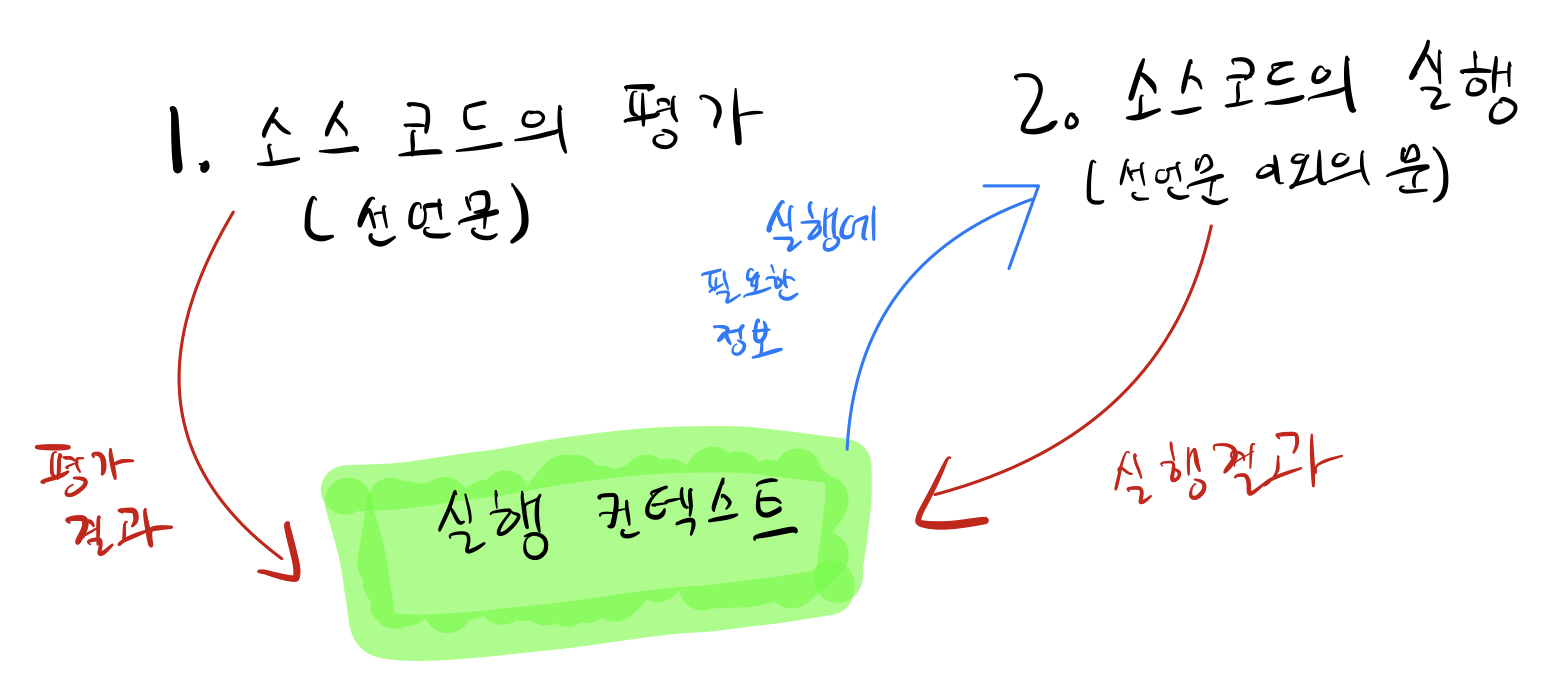 1. 소스코드의 평가
(선언문)
2. 소스코드의 실행
(선언문 이외의 문)
실행에
필요한
정보
평가
결과
실행 컨텍스트
실행결과